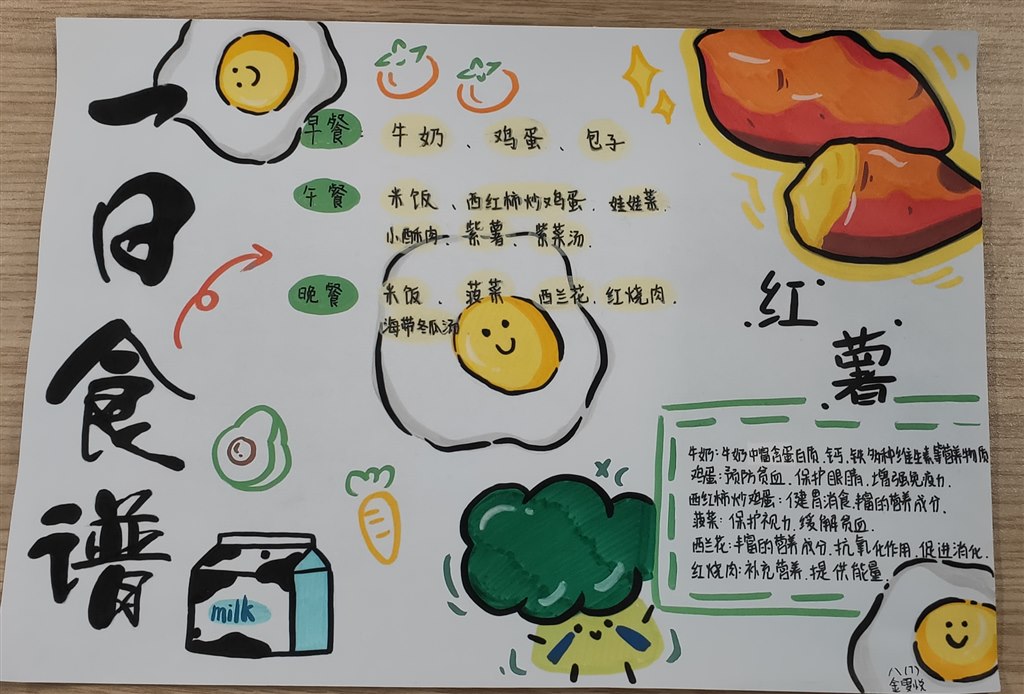 一日食谱
早餐 牛奶、鸡蛋、包子
午餐 米饭、西红柿炒鸡蛋、娃娃菜、
小酥肉、紫薯、紫菜汤.
晚餐 米饭、菠菜、西兰花、红烧肉.
海带冬瓜汤
红薯
牛奶:牛奶中富含蛋白质、钙、铁多种维生素等营养物质
鸡蛋:预防贫血、保护眼睛、增强免疫力.
西红柿炒鸡蛋:健胃消食、丰富的营养成分.
菠菜:保护视力、缓解贫血.
西兰花:丰富的营养成分、抗氧化作用、促进消化.
红烧肉:补充营养、提供能量.
milk
八(7)